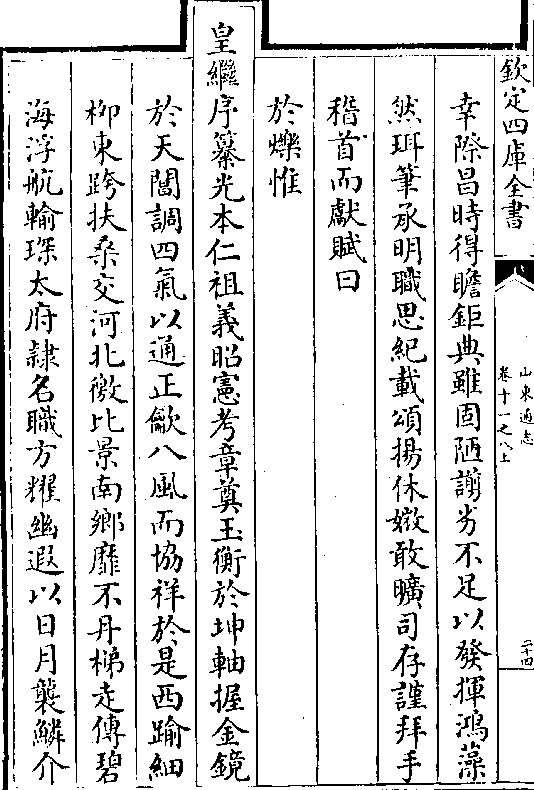 欽定四庫全書
山東通志
卷十一之八上
二十四
幸際昌時得瞻鉅典雖固陋謭劣不足以發揮鴻藻
然珥筆承明職思紀載頌揚休媺敢曠司存謹拜手
稽首而獻賦曰
於爍惟
皇繼序纂光本仁祖義昭憲考章奠玉衡於坤軸握金鏡
於天閶調四氣以通正龡八風而協祥於是西踰細
柳東跨扶桑交河北徼比景南鄉靡不丹梯走傳碧
海浮航輸琛太府隷名職方耀幽遐以日月襲鱗介